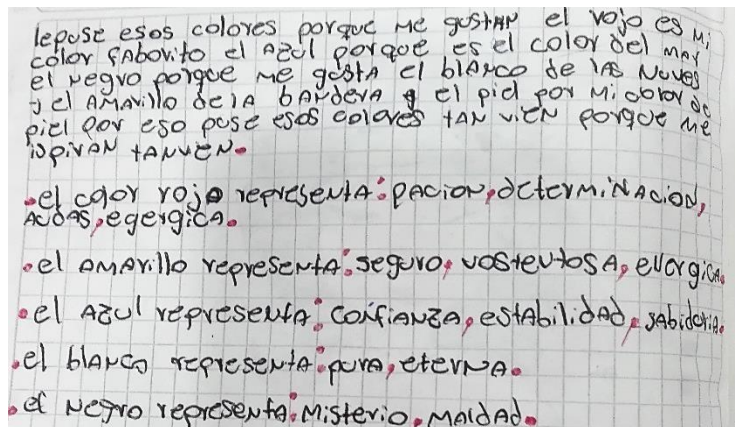 lepuse esos colores porque me gustan el rojo es mi
color faborito el azul porque es el color del mar
el negro porque me gusta el blanco de las nuves
y el amarillo dela bandera y el piel por mi color de
piel por eso puse esos colores tan vien porque me
ispiran tanven.
.el color rojo representa: pacion, determinacion,
audas, egergica.
.el amarillo representa: seguro, vostentosa, energica.
.el azul representa: confianza, estabilidad, sabidoria.
.el blanco representa: pura, eterna.
.el negro representa: misterio, maldad.